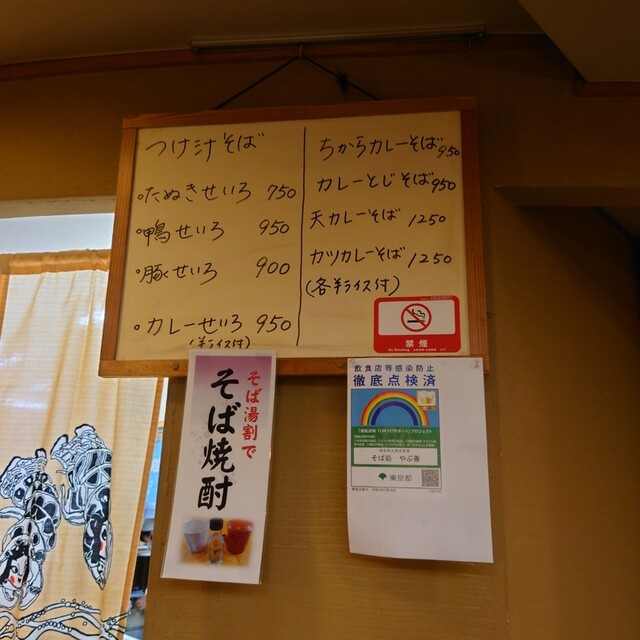 つけ汁そば
・たぬきせいろ 750
・鴨せいろ 950
・豚せいろ 900
・カレーせいろ 950
(半ライス付)
ちからカレーそば 950
カレーとじそば 950
天カレーそば 1250
カツカレーそば 1250
(各半ライス付)
禁煙
そば湯割で
そば焼酎
飲食店等感染防止
徹底点検済
「徹底点検 TOKYOサポート」プロジェクト
そば処 やぶ善
東京都